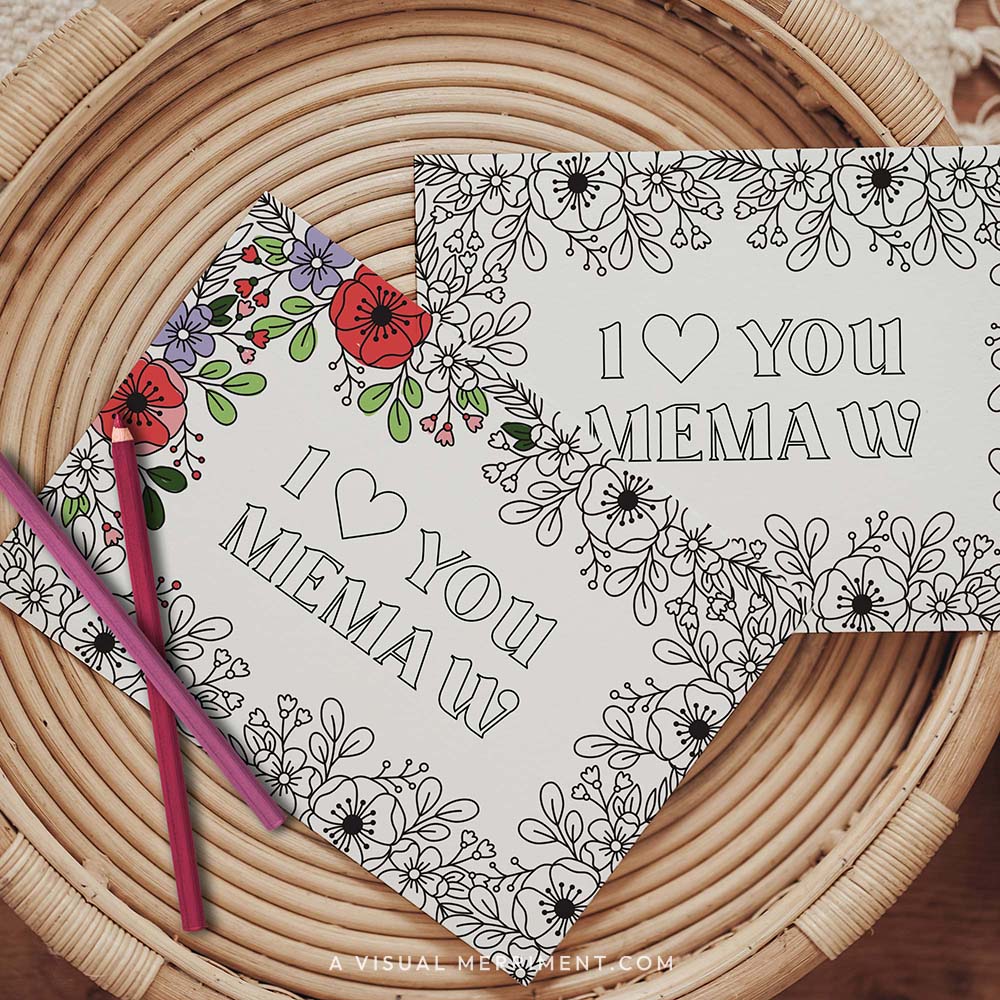 I ♡ YOU
MEMAW
I ♡ YOU
MEMAW
A VISUAL MERRIMENT.COM